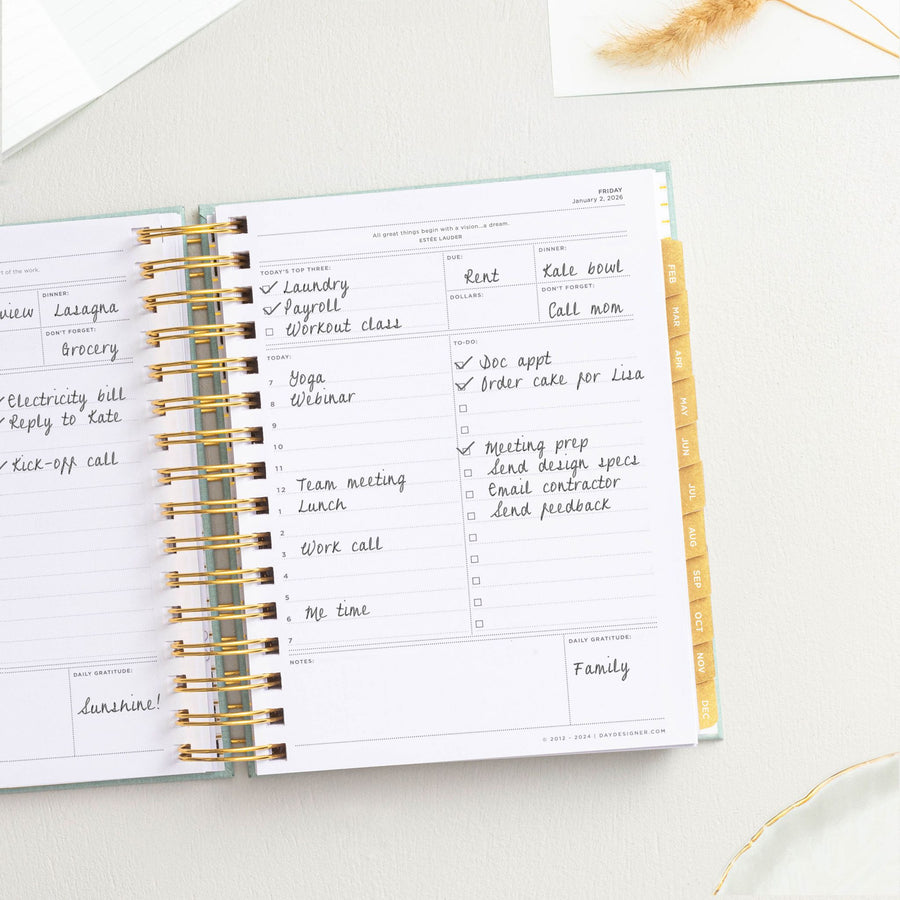 rt of the work.
view
DINNER:
Lasagna
DON'T FORGET:
Grocery
Electricity bill
Reply to Kate
Kick-off call
DAILY GRATITUDE:
Sunshine!
FRIDAY
January 2, 2026
All great things begin with a vision...a dream.
ESTÉE LAUDER
TODAY'S TOP THREE:
Laundry
Payroll
Workout class
DUE:
Rent
DOLLARS:
DINNER:
Kale bowl
DON'T FORGET:
Call mom
TODAY:
7 Yoga
8 Webinar
9
10
11
12 Team meeting
1 Lunch
2
3 Work call
4
5
6 Me time
7
TO-DO:
Doc appt
Order cake for Lisa
Meeting prep
Send design specs
Email contractor
Send feedback
NOTES:
DAILY GRATITUDE:
Family
© 2012 - 2024 | DAYDESIGNER.COM
FEB
MAR
APR
MAY
JUN
JUL
AUG
SEP
OCT
NOV
DEC